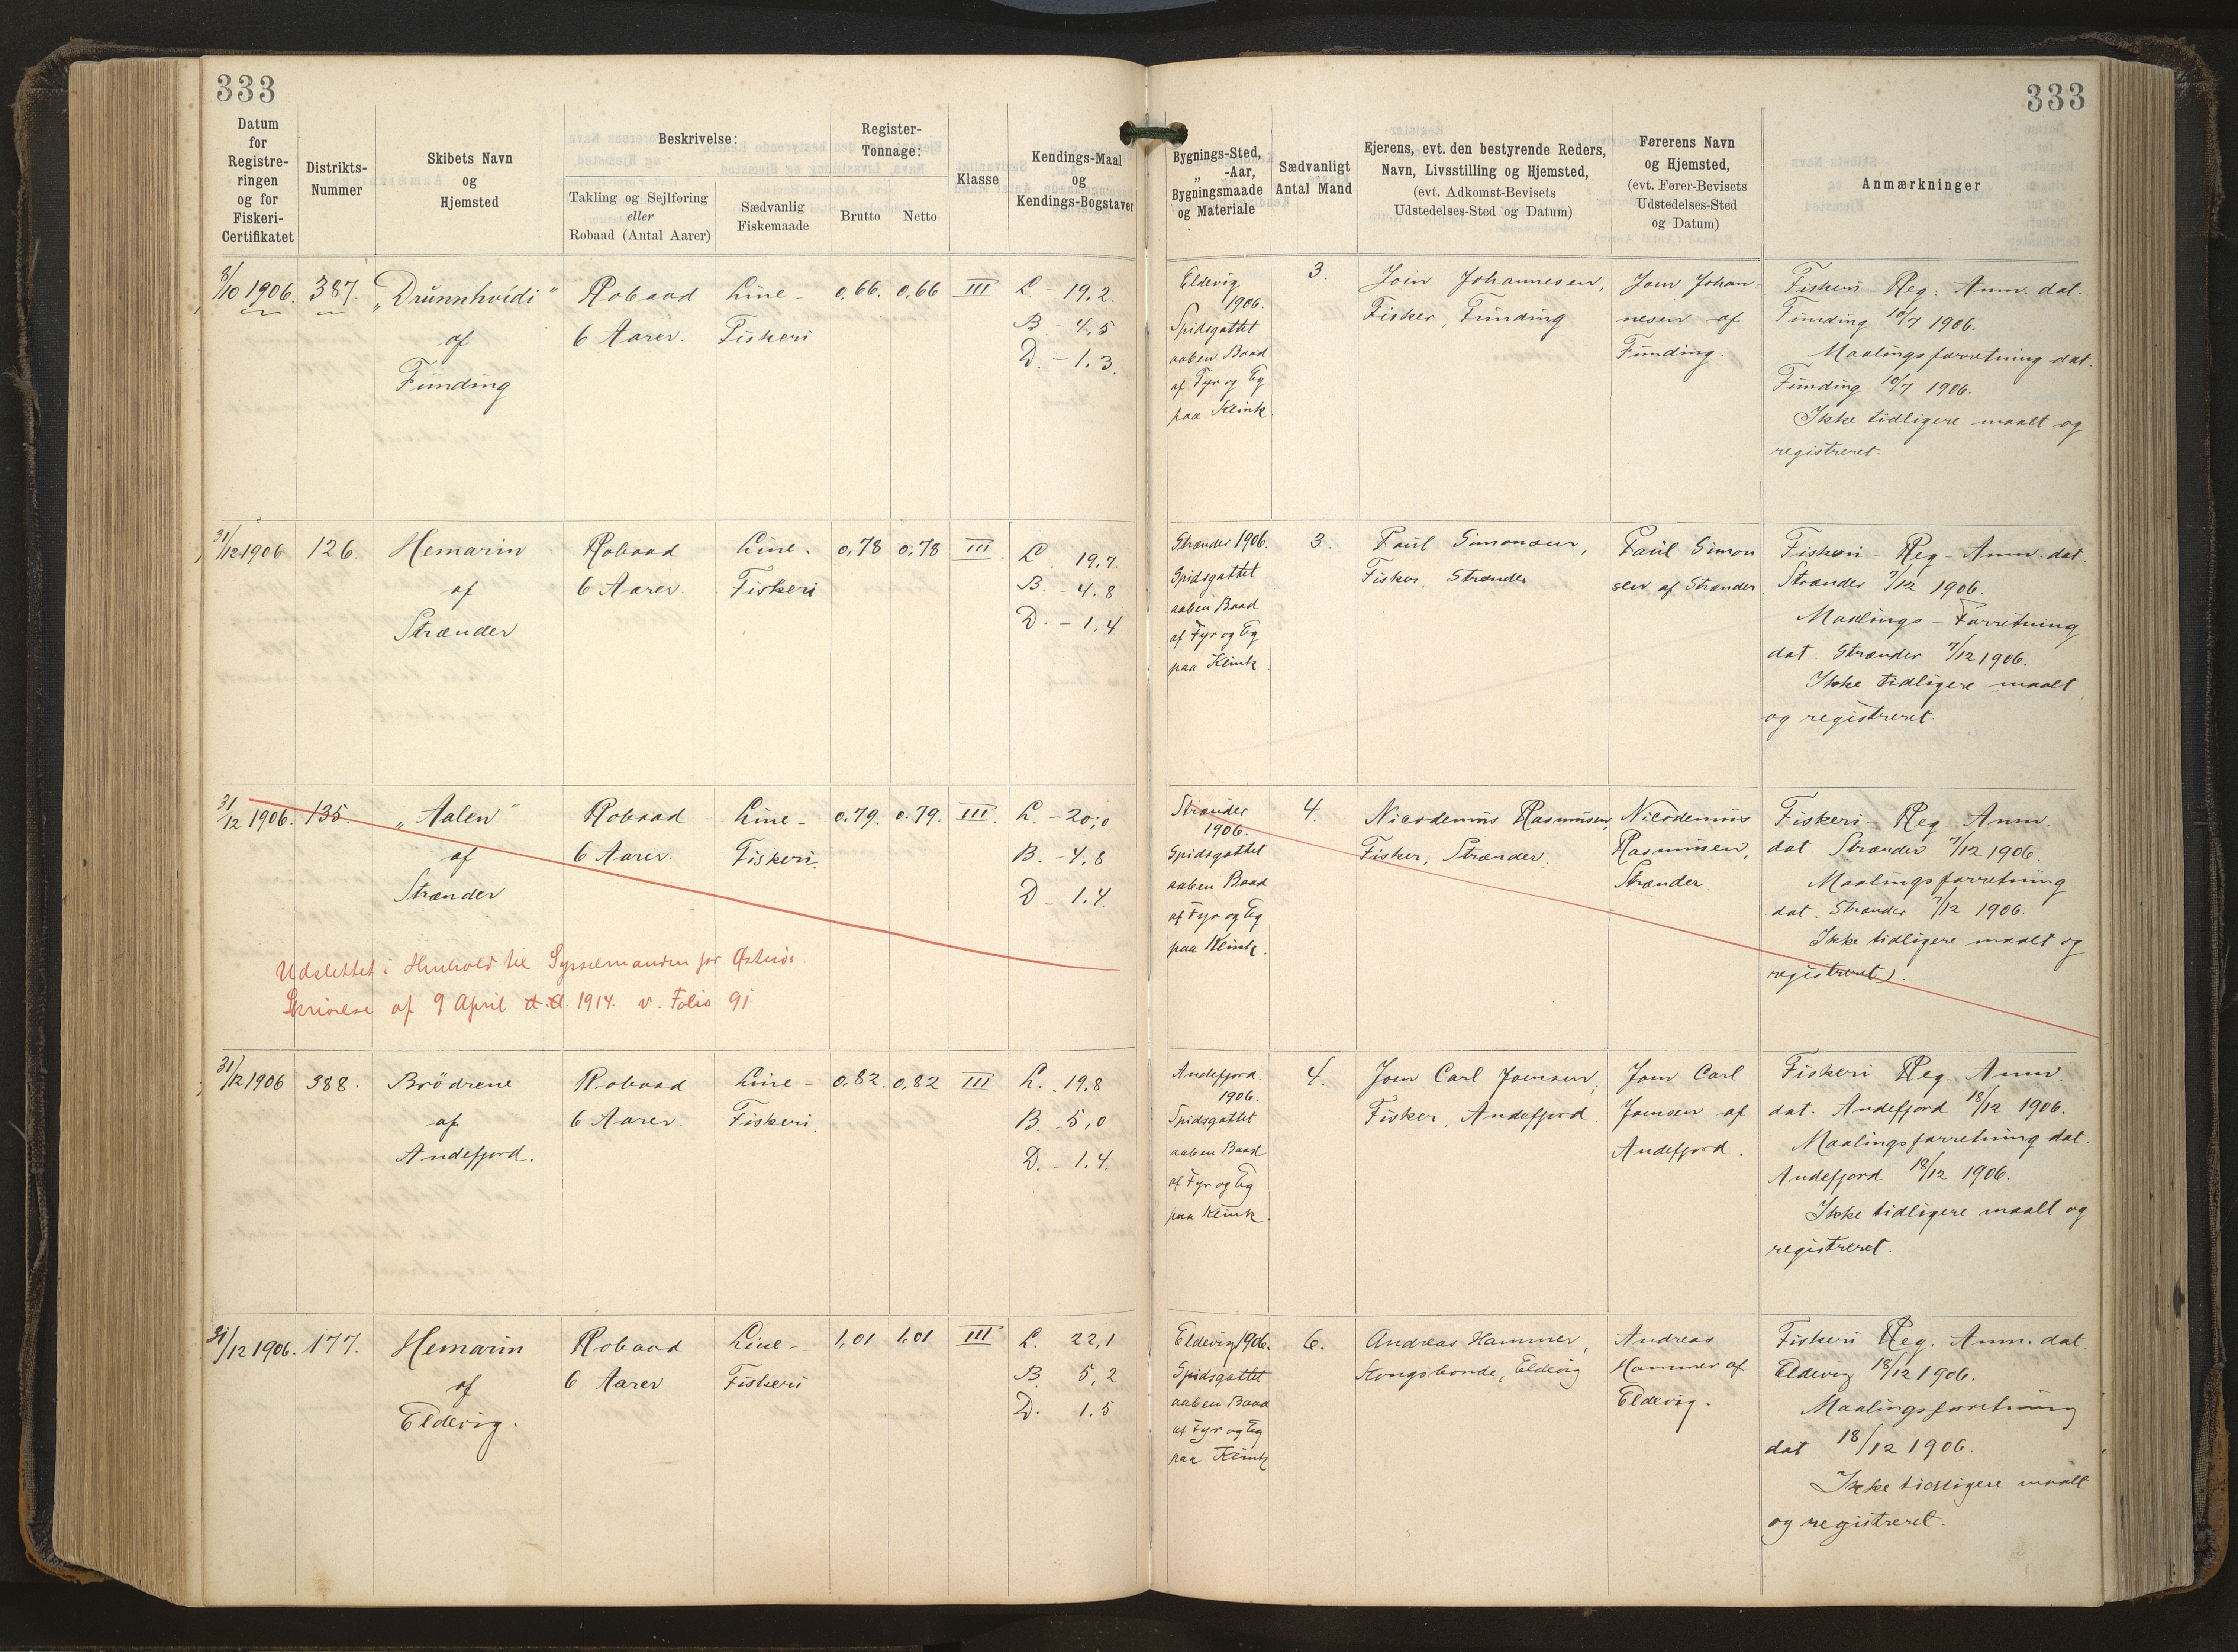 333
333
Datum
for
Registre-
ringen
og for
Fiskeri-
Certifikatet
Distrikts-
Nummer
Skibets Navn
og
Hjemsted
Beskrivelse:
Takling og Sejlføring
eller
Robaad (Antal Aarer)
Sædvanlig
Fiskemaade
Register-
Tonnage:
Brutto
Netto
Klasse
Kendings-Maal
og
Kendings-Bogstaver
Bygnings-Sted,
„ -Aar,
Bygningsmaade
og Materiale
Sædvanligt
Antal Mand
Ejerens, evt. den bestyrende Reders,
Navn, Livsstilling og Hjemsted,
(evt. Adkomst-Bevisets
Udstedelses-Sted og Datum)
Førerens Navn
og Hjemsted,
(evt. Fører-Bevisets
Udstedelses-Sted
og Datum)
Anmærkninger
8/10 1906.
387.
„Drünnhvidi"
af
Funding
Robaad
6 Aarer.
Line-
Fiskeri
0,66.
0,66
III
L - 19,2.
B. - 4,5
D. - 1,3.
Eldevig
1906.
Spidsgattet
aaben Baad
af Fyr og Eg
paa Klink.
3.
Join Johannesen,
Fisker, Funding
Join Johan-
nesen af
Funding.
Fiskeri-Reg. Anm. dat.
Funding 10/7 1906.
Maalingsforretning dat.
Funding 10/7 1906.
Ikke tidligere maalt og
registreret.
31/12 1906
126.
Hemarin
af
Strænder
Robaad
6 Aarer.
Line.
Fiskeri
0,78
0,78
III.
L. 19,7.
B. - 4,8
D. - 1,4
Strænder 1906.
Spidsgattet
aaben Baad
af Fyr og Eg
paa Klink.
3.
Paul Simonsen,
Fisker, Strænder
Paul Simon
sen af Strænder
Fiskeri-Reg-Anm. dat.
Strænder 7/12 1906.
Maalings-Forretning
dat. Strænder 7/12 1906.
Ikke tidligere maalt
og registreret.
31/12 1906.
135.
„Aalen"
af
Strænder
Robaad
6 Aarer.
Line-
Fiskeri.
0.79.
0.79.
III.
L. - 20,0
B. - 4,8
D - 1,4.
Udslettet i Henhold til Sysselmanden for Østerøs
Skrivelse af 9 April d.A. 1914. v. Folio 91
Strænder
1906.
Spidsgattet
aaben Baad
af Fyr og Eg
paa Klink.
4.
Nicodemus Rasmusen,
Fisker, Strænder.
Nicodemus
Rasmusen,
Strænder.
Fiskeri-Reg Anm.
dat. Strænder 7/12 1906.
Maalingsforretning
dat. Strænder 7/12 1906.
Ikke tidligere maalt og
registreret.
31/12 1906
388.
Brødrene
af
Andefjord.
Robaad
6 Aarer.
Line-
Fiskeri.
0,82.
0,82
III
L. 19,8
B. - 5,0
D. - 1.4.
Andefjord.
1906.
Spidsgattet
aaben Baad
af Fyr og Eg
paa Klink.
4.
Joen Carl Joensen,
Fisker, Andefjord
Joen Carl
Joensen af
Andefjord.
Fiskeri Reg Anm.
dat. Andefjord 18/12 1906.
Maalingsforretning dat.
Andefjord 18/12 1906.
Ikke tidligere maalt og
registreret.
31/12 1906.
177.
Hemarin
af
Eldevig.
Robaad
6 Aarer
Line-
Fiskeri
1,01
1,01
III
L. 22,1
B. 5,2
D. 1.5
Eldevig 1906.
Spidsgattet
aaben Baad
af Fyr og Eg
paa Klink
6.
Andreas Hammer,
Kongsbonde, Eldevig
Andreas
Hammer af
Eldevig.
Fiskeri Reg. Anm. dat.
Eldevig 18/12 1906.
Maalingsforretning
dat 18/12 1906.
Ikke tidligere maalt
og registreret.